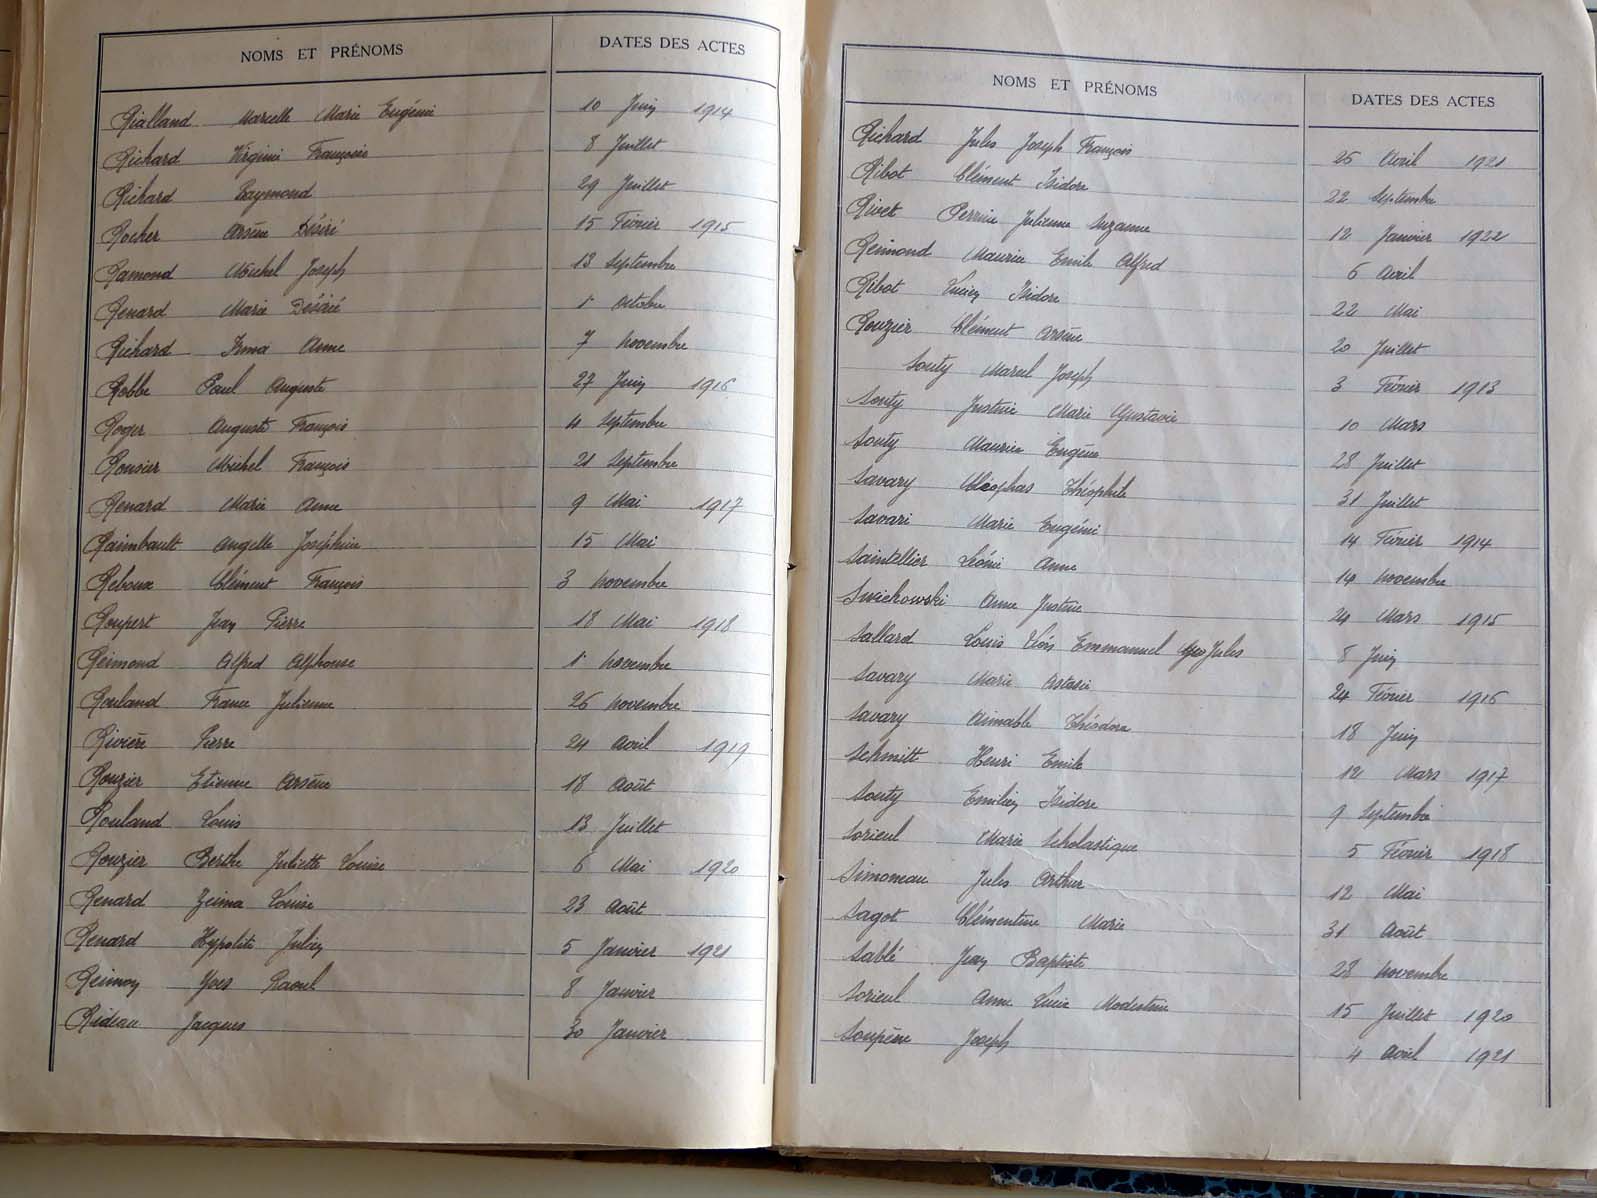 NOMS ET PRÉNOMS DATES DES ACTES
Rialland Marcelle Marie Eugénie 10 Juin 1914
Richard Virginie Françoise 8 Juillet
Richard Raymond 29 Juillet
Rocher Arsène Désiré 15 Février 1915
Ramond Michel Joseph 13 Septembre
Renard Marie Désiré 1r Octobre
Richard Irma Anne 7 Novembre
Robbe Paul Auguste 27 Juin 1916
Roger Auguste François 4 Septembre
Rousier Michel François 21 Septembre
Renard Marie Anne 9 Mai 1917
Raimbault Angelle Joséphine 15 Mai
Reboux Clément François 3 Novembre
Roupert Jean Pierre 18 Mai 1918
Reimond Alfred Alphonse 1r Novembre
Rouland France Julienne 26 Novembre
Rivière Pierre 24 Avril 1919
Rouzier Etienne Arsène 18 Août
Rouland Louis 13 Juillet
Rouzier Berthe Juliette Louise 6 Mai 1920
Renard Louise 23 Août
Renard Hypolite Julien 5 Janvier 1921
Yves Raoul 8 Janvier
Rideau Jacques 30 Janvier
NOMS ET PRÉNOMS DATES DES ACTES
Richard Jules Joseph François 25 Avril 1921
Ribot Clément Isidore 22 Septembre
Rivet Perrine Julienne Suzanne 12 Janvier 1922
Reimond Maurice Emile Alfred 6 Avril
Ribot Lucien Isidore 22 Mai
Rouzier Clément Arsène 20 Juillet
Souty Marcel Joseph 3 Février 1913
Souty Justine Marie Gustavie 10 Mars
Souty Maurice Eugène 28 Juillet
Savary Cléophas Théophile 31 Juillet
Savari Marie Eugénie 14 Février 1914
Saintellier Léonie Anne 14 Novembre
Swichowski Anne Justine 24 Mars 1915
Sallard Louis Emmanuel Jules 8 Juin
Savary Marie Astasie 24 Février 1916
Savary Aimable Théodore 18 Juin
Schmitt Henri Emile 12 Mars 1917
Souty Emilien Isidore 9 Septembre
Sorieul Marie Scholastique 5 Février 1918
Simoneau Jules Arthur 12 Mai
Sagot Clémentine Marie 31 Août
Sablé Jean Baptiste 28 Novembre
Sorieul Anne Lucie Modestine 15 Juillet 1920
Soupène Joseph 4 Avril 1921